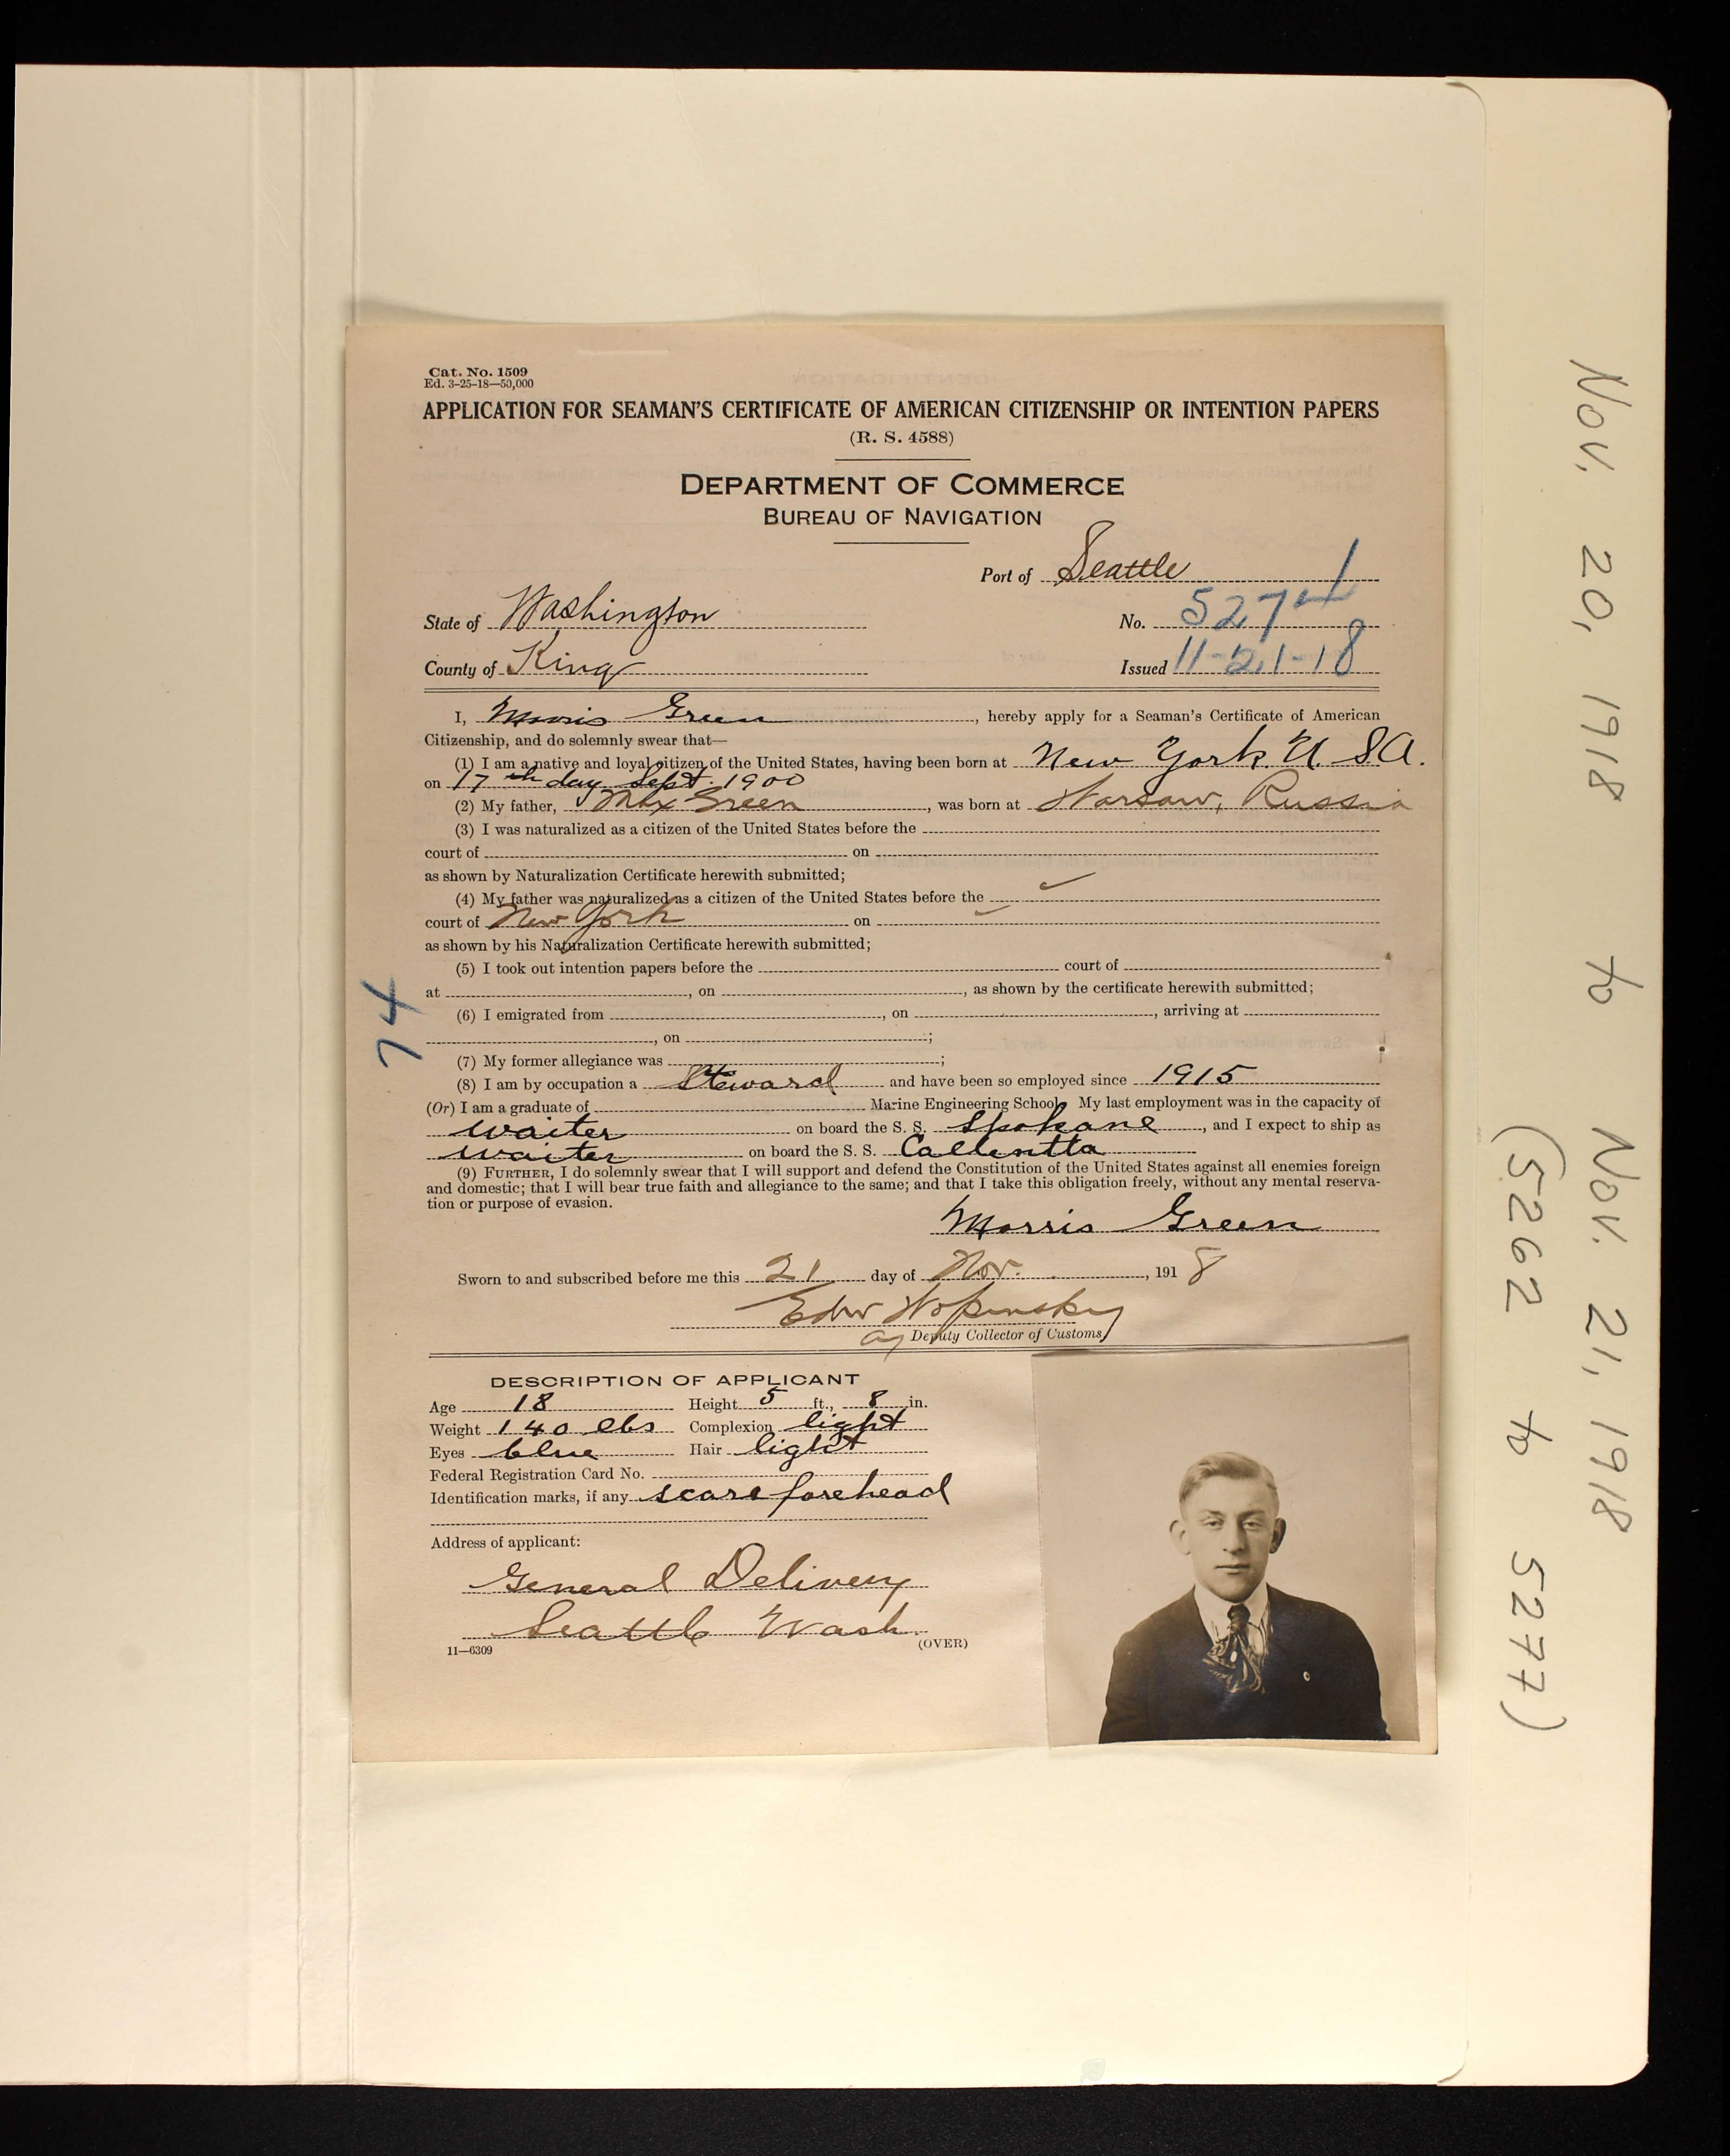 Cat. No. 1509
Ed. 3-25-18—50,000
APPLICATION FOR SEAMAN'S CERTIFICATE OF AMERICAN CITIZENSHIP OR INTENTION PAPERS
(R. S. 4588)
DEPARTMENT OF COMMERCE
BUREAU OF NAVIGATION
Port of Seattle
State of Washington
No. 5274
County of King
Issued 11-21-18
I, Morris Green, hereby apply for a Seaman's Certificate of American
Citizenship, and do solemnly swear that—
(1) I am a native and loyal citizen of the United States, having been born at New York. U. S A.
on 17th day Sept. 1900
(2) My father, Max Green, was born at Warsaw, Russia
(3) I was naturalized as a citizen of the United States before the
court of on
as shown by Naturalization Certificate herewith submitted;
(4) My father was naturalized as a citizen of the United States before the
court of New York on
as shown by his Naturalization Certificate herewith submitted;
(5) I took out intention papers before the court of
at , on , as shown by the certificate herewith submitted;
(6) I emigrated from , on , arriving at
, on ;
(7) My former allegiance was ;
(8) I am by occupation a Steward and have been so employed since 1915
(Or) I am a graduate of Marine Engineering School. My last employment was in the capacity of
waiter on board the S. S. Spokane, and I expect to ship as
waiter on board the S. S.
(9) FURTHER, I do solemnly swear that I will support and defend the Constitution of the United States against all enemies foreign
and domestic; that I will bear true faith and allegiance to the same; and that I take this obligation freely, without any mental reserva-
tion or purpose of evasion.
Morris Green
Sworn to and subscribed before me this 21 day of Nov., 1918
Edw
Deputy Collector of Customs
DESCRIPTION OF APPLICANT
Age 18 Height 5 ft., 8 in.
Weight 140 lbs Complexion light
Eyes blue Hair light
Federal Registration Card No.
Identification marks, if any scars forehead
Address of applicant:
General Delivery
Seattle Wash.
11—6309
(OVER)
Nov. 20, 1918 to Nov. 21, 1918
(5262 to 5277)